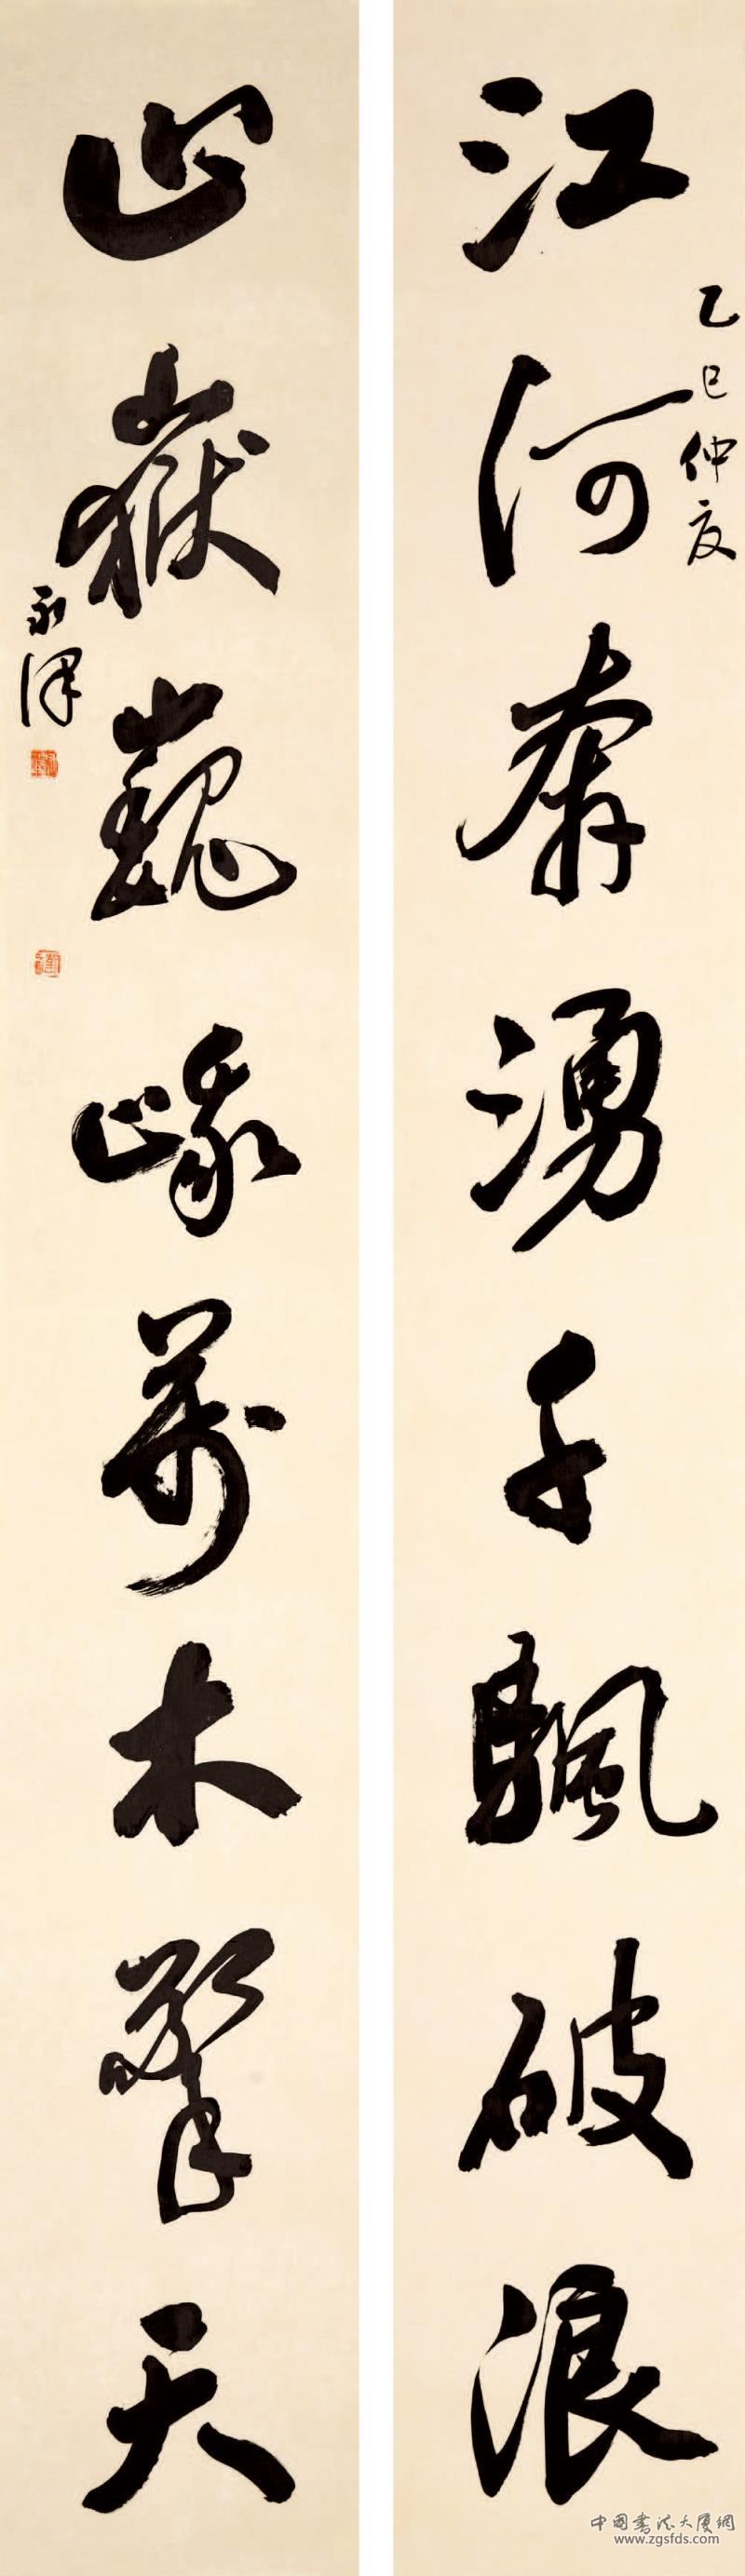 乙巳仲夏
江河奔湧千颿破浪
山嶽巍峨萬木擎天
永澤
中國書法大廈網
www.zgsfds.com